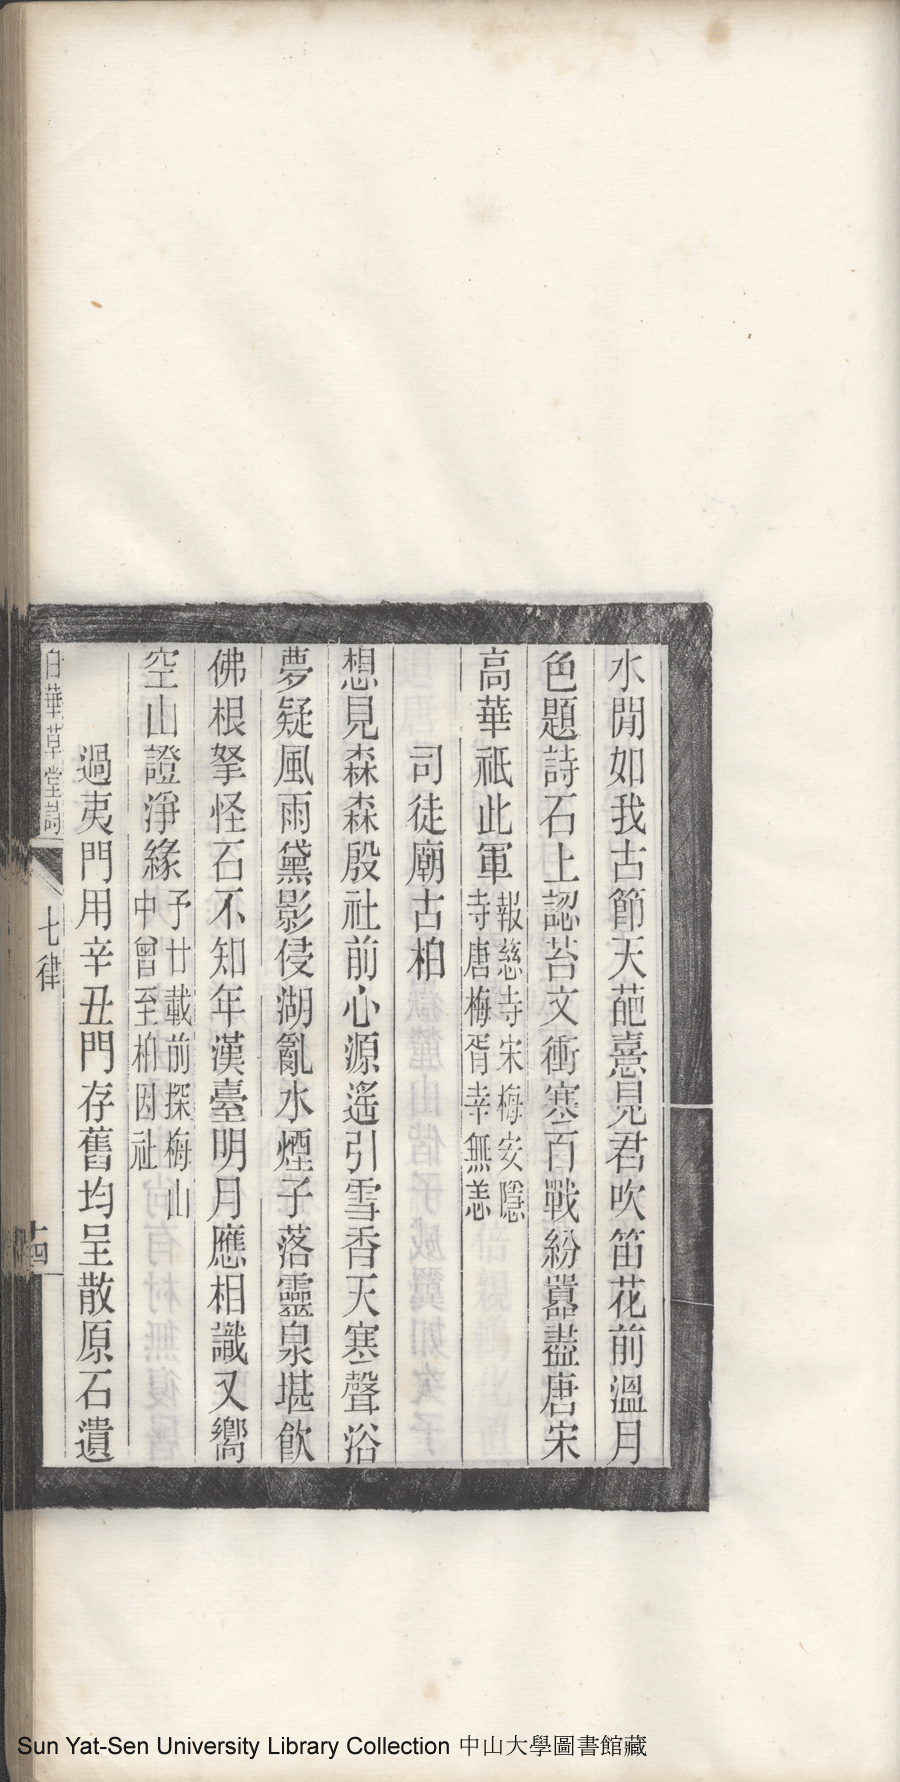 水閒如我古節天葩憙見君吹笛花前溫月
色題詩石上認苔文衝寒百戰紛囂盡唐宋
高華祇此軍報慈寺宋梅安隱寺唐梅胥幸無恙
司徒廟古柏
想見森森殷社前心源遙引雪香天寒聲浴
夢疑風雨黛影侵湖亂水煙子落靈泉堪飲
佛根拏怪石不知年漢臺明月應相識又嚮
空山證淨緣予廿載前探梅山中曾至柏因社
過夷門用辛丑門存舊均呈散原石遺
白華草堂詩
七律
十四
Sun Yat-Sen University Library Collection 中山大學圖書館藏